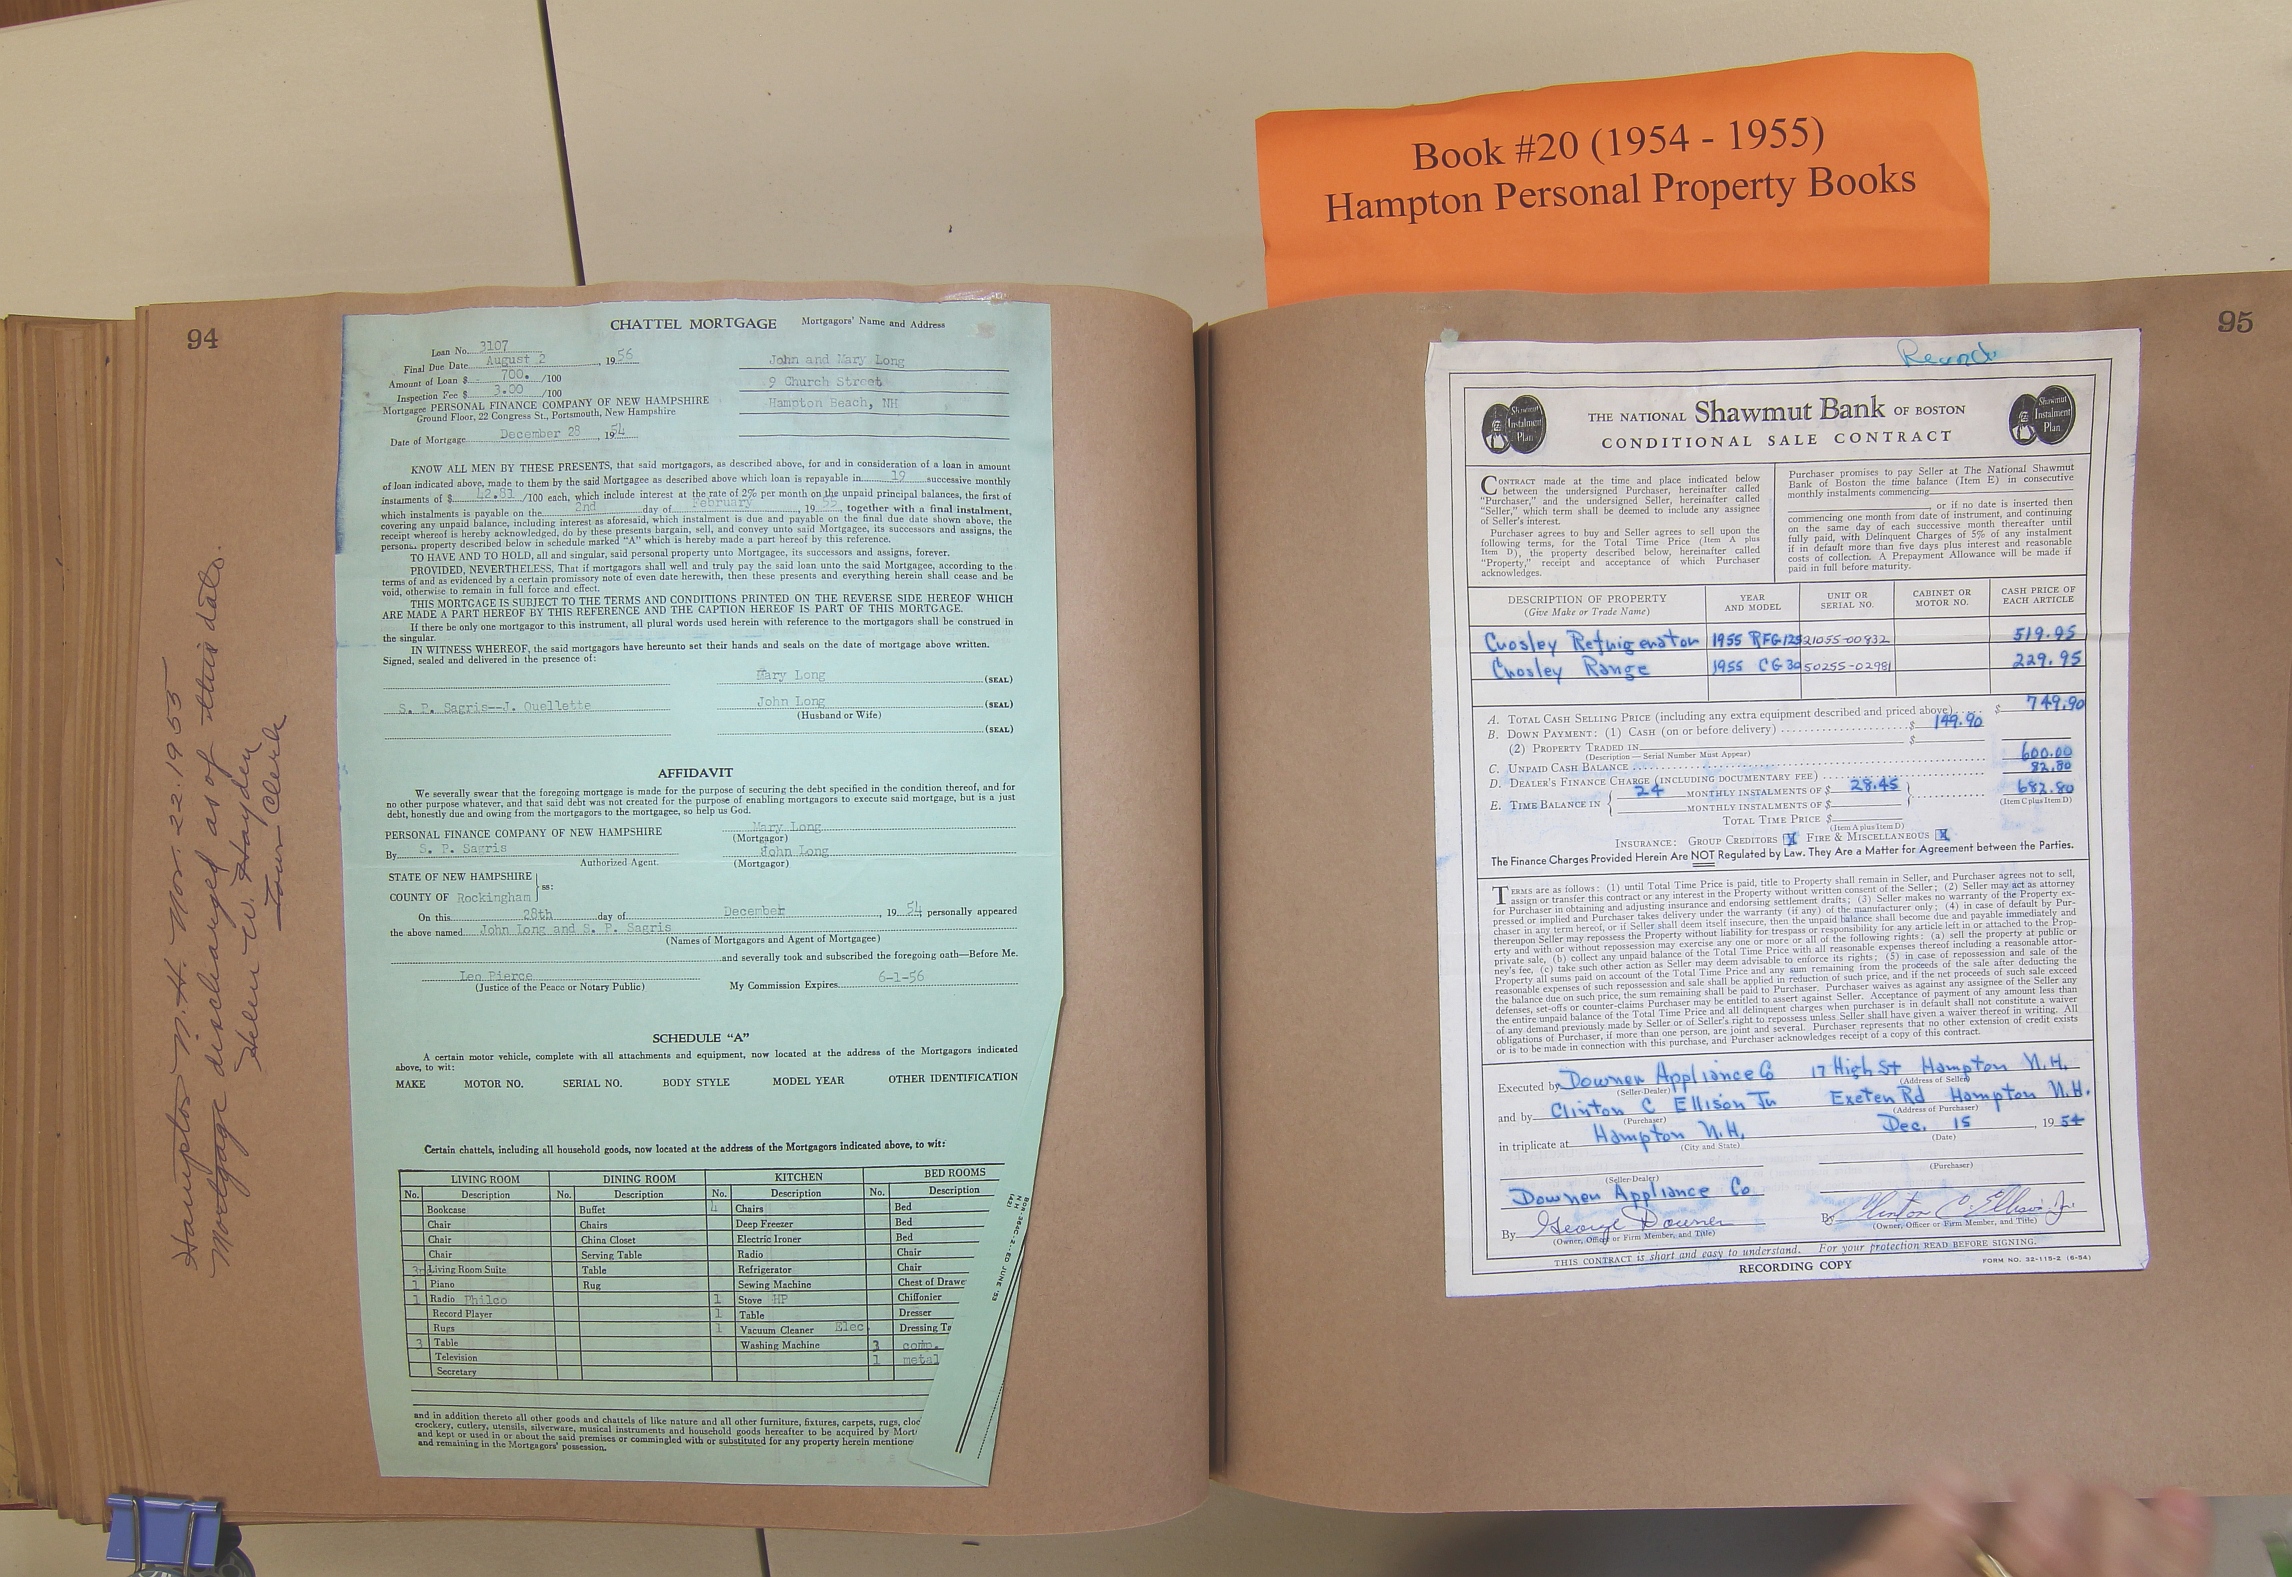 Book #20 (1954 - 1955)
Hampton Personal Property Books
94
Hampton N.H. Nov. 22. 1955
Mortgage discharged as of this date.
Helen W. Hayden
Town Clerk
CHATTEL MORTGAGE
Mortgagors' Name and Address
Loan No. 3107
Final Due Date August 2, 1956
Amount of Loan $ 700. /100
Inspection Fee $ 3.00 /100
Mortgagee PERSONAL FINANCE COMPANY OF NEW HAMPSHIRE
Ground Floor, 22 Congress St., Portsmouth, New Hampshire
Date of Mortgage December 28, 1954
John and Mary Long
9 Church Street
Hampton Beach, NH
KNOW ALL MEN BY THESE PRESENTS, that said mortgagors, as described above, for and in consideration of a loan in amount
of loan indicated above, made to them by the said Mortgagee as described above which loan is repayable in 19 successive monthly
instalments of $ 42.81 /100 each, which include interest at the rate of 2% per month on the unpaid principal balances, the first of
which instalments is payable on the 2nd day of February, 1955, together with a final instalment,
covering any unpaid balance, including interest as aforesaid, which instalment is due and payable on the final due date shown above, the
receipt whereof is hereby acknowledged, do by these presents bargain, sell, and convey unto said Mortgagee, its successors and assigns, the
personal property described below in schedule marked "A" which is hereby made a part hereof by this reference.
TO HAVE AND TO HOLD, all and singular, said personal property unto Mortgagee, its successors and assigns, forever.
PROVIDED, NEVERTHELESS, That if mortgagors shall well and truly pay the said loan unto the said Mortgagee, according to the
terms of and as evidenced by a certain promissory note of even date herewith, then these presents and everything herein shall cease and be
void, otherwise to remain in full force and effect.
THIS MORTGAGE IS SUBJECT TO THE TERMS AND CONDITIONS PRINTED ON THE REVERSE SIDE HEREOF WHICH
ARE MADE A PART HEREOF BY THIS REFERENCE AND THE CAPTION HEREOF IS PART OF THIS MORTGAGE.
If there be only one mortgagor to this instrument, all plural words used herein with reference to the mortgagors shall be construed in
the singular.
IN WITNESS WHEREOF, the said mortgagors have hereunto set their hands and seals on the date of mortgage above written.
Signed, sealed and delivered in the presence of:
Mary Long (SEAL)
S. P. Sagris--J. Ouellette
John Long (SEAL)
(Husband or Wife)
(SEAL)
AFFIDAVIT
We severally swear that the foregoing mortgage is made for the purpose of securing the debt specified in the condition thereof, and for
no other purpose whatever, and that said debt was not created for the purpose of enabling mortgagors to execute said mortgage, but is a just
debt, honestly due and owing from the mortgagors to the mortgagee, so help us God.
PERSONAL FINANCE COMPANY OF NEW HAMPSHIRE
Mary Long
(Mortgagor)
By S. P. Sagris
Authorized Agent.
John Long
(Mortgagor)
STATE OF NEW HAMPSHIRE
ss:
COUNTY OF Rockingham
On this 28th day of December, 1954 personally appeared
the above named John Long and S. P. Sagris
(Names of Mortgagors and Agent of Mortgagee)
and severally took and subscribed the foregoing oath—Before Me.
Leo Pierce
(Justice of the Peace or Notary Public)
My Commission Expires 6-1-56
SCHEDULE "A"
A certain motor vehicle, complete with all attachments and equipment, now located at the address of the Mortgagors indicated
above, to wit:
MAKE MOTOR NO. SERIAL NO. BODY STYLE MODEL YEAR OTHER IDENTIFICATION
Certain chattels, including all household goods, now located at the address of the Mortgagors indicated above, to wit:
LIVING ROOM DINING ROOM KITCHEN BED ROOMS
No. Description No. Description No. Description No. Description
Bookcase Buffet 4 Chairs Bed
Chair Chairs Deep Freezer Bed
Chair China Closet Electric Ironer Bed
Chair Serving Table Radio Chair
3 Living Room Suite Table Refrigerator Chair
1 Piano Rug Sewing Machine Chest of Drawe
1 Radio Philco 1 Stove HP Chiffonier
Record Player 1 Table Dresser
Rugs 1 Vacuum Cleaner Elec Dressing Ta
3 Table Washing Machine 3 comp.
Television 1 metal
Secretary
and in addition thereto all other goods and chattels of like nature and all other furniture, fixtures, carpets, rugs, cloc
crockery, cutlery, utensils, silverware, musical instruments and household goods hereafter to be acquired by Mort
and kept or used in or about the said premises or commingled with or substituted for any property herein mentione
and remaining in the Mortgagors' possession.
95
Record
Shawmut Instalment Plan
THE NATIONAL Shawmut Bank OF BOSTON
CONDITIONAL SALE CONTRACT
Shawmut Instalment Plan
CONTRACT made at the time and place indicated below
between the undersigned Purchaser, hereinafter called
"Purchaser," and the undersigned Seller, hereinafter called
"Seller," which term shall be deemed to include any assignee
of Seller's interest.
Purchaser agrees to buy and Seller agrees to sell upon the
following terms, for the Total Time Price (Item A plus
Item D), the property described below, hereinafter called
"Property," receipt and acceptance of which Purchaser
acknowledges.
Purchaser promises to pay Seller at The National Shawmut
Bank of Boston the time balance (Item E) in consecutive
monthly instalments commencing
, or if no date is inserted then
commencing one month from date of instrument, and continuing
on the same day of each successive month thereafter until
fully paid, with Delinquent Charges of 5% of any instalment
if in default more than five days plus interest and reasonable
costs of collection. A Prepayment Allowance will be made if
paid in full before maturity.
DESCRIPTION OF PROPERTY (Give Make or Trade Name) YEAR AND MODEL UNIT OR SERIAL NO. CABINET OR MOTOR NO. CASH PRICE OF EACH ARTICLE
Crosley Refrigerator 1955 RFG12S 21055-00832 519.95
Crosley Range 1955 CG30 50255-02981 229.95
A. TOTAL CASH SELLING PRICE (including any extra equipment described and priced above) $ 749.90
B. DOWN PAYMENT: (1) CASH (on or before delivery) $ 149.90
(2) PROPERTY TRADED IN $
(Description — Serial Number Must Appear)
C. UNPAID CASH BALANCE 600.00
D. DEALER'S FINANCE CHARGE (INCLUDING DOCUMENTARY FEE) 82.80
E. TIME BALANCE IN 24 MONTHLY INSTALMENTS OF $ 28.45 682.80
MONTHLY INSTALMENTS OF $ (Item C plus Item D)
TOTAL TIME PRICE $
(Item A plus Item D)
INSURANCE: GROUP CREDITORS X FIRE & MISCELLANEOUS X
The Finance Charges Provided Herein Are NOT Regulated by Law. They Are a Matter for Agreement between the Parties.
TERMS are as follows: (1) until Total Time Price is paid, title to Property shall remain in Seller, and Purchaser agrees not to sell,
assign or transfer this contract or any interest in the Property without written consent of the Seller; (2) Seller may act as attorney
for Purchaser in obtaining and adjusting insurance and endorsing settlement drafts; (3) Seller makes no warranty of the Property ex-
pressed or implied and Purchaser takes delivery under the warranty (if any) of the manufacturer only; (4) in case of default by Pur-
chaser in any term hereof, or if Seller shall deem itself insecure, then the unpaid balance shall become due and payable immediately and
thereupon Seller may repossess the Property without liability for trespass or responsibility for any article left in or attached to the Prop-
erty and with or without repossession may exercise any one or more or all of the following rights: (a) sell the property at public or
private sale, (b) collect any unpaid balance of the Total Time Price with all reasonable expenses thereof including a reasonable attor-
ney's fee, (c) take such other action as Seller may deem advisable to enforce its rights; (5) in case of repossession and sale of the
Property all sums paid on account of the Total Time Price and any sum remaining from the proceeds of the sale after deducting the
reasonable expenses of such repossession and sale shall be applied in reduction of such price, and if the net proceeds of such sale exceed
the balance due on such price, the sum remaining shall be paid to Purchaser. Purchaser waives as against any assignee of the Seller any
defenses, set-offs or counter-claims Purchaser may be entitled to assert against Seller. Acceptance of payment of any amount less than
the entire unpaid balance of the Total Time Price and all delinquent charges when purchaser is in default shall not constitute a waiver
of any demand previously made by Seller or of Seller's right to repossess unless Seller shall have given a waiver thereof in writing. All
obligations of Purchaser, if more than one person, are joint and several. Purchaser represents that no other extension of credit exists
or is to be made in connection with this purchase, and Purchaser acknowledges receipt of a copy of this contract.
Executed by Downer Appliance Co 17 High St Hampton N.H.
(Seller-Dealer) (Address of Seller)
and by Clinton C Ellison Jr Exeter Rd Hampton N.H.
(Purchaser) (Address of Purchaser)
in triplicate at Hampton N.H. Dec. 15, 1954
(City and State) (Date)
(Seller-Dealer) (Purchaser)
Downer Appliance Co
By George Downer By Clinton C. Ellison Jr.
(Owner, Officer or Firm Member, and Title) (Owner, Officer or Firm Member, and Title)
THIS CONTRACT is short and easy to understand. For your protection READ BEFORE SIGNING.
RECORDING COPY
FORM NO. 32-115-2 (6-54)